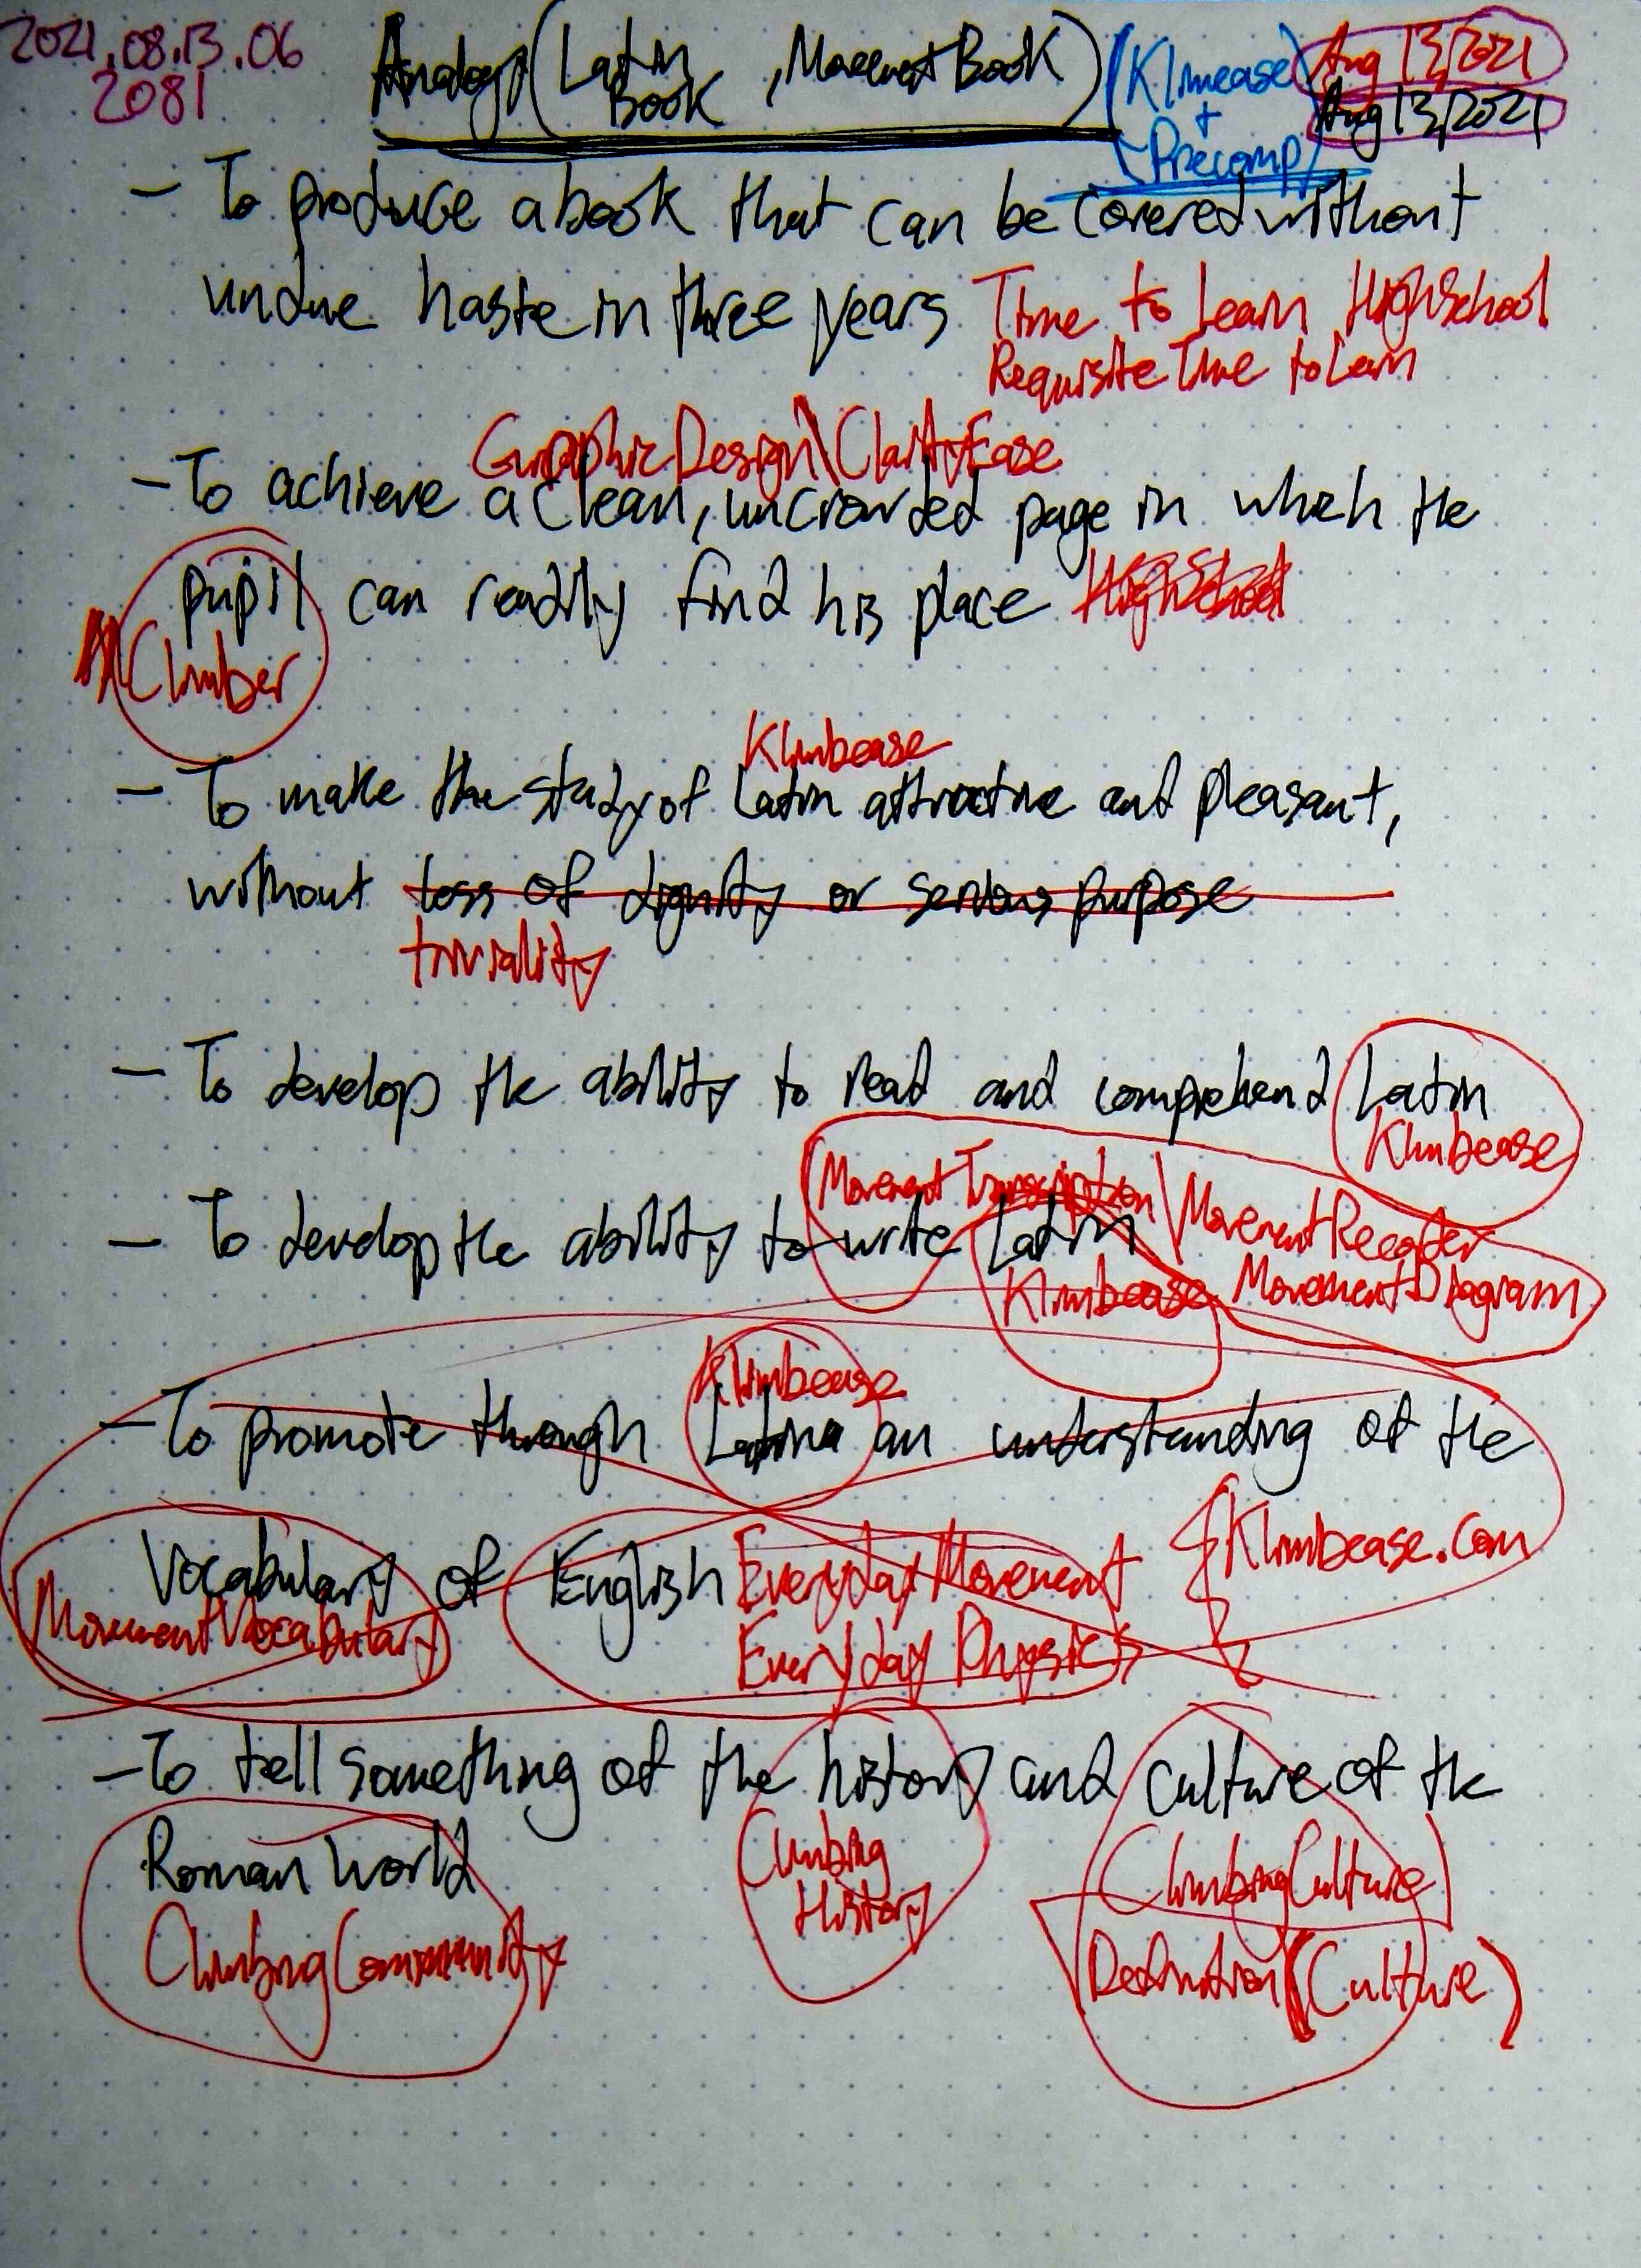 2021.08.13.06
2081
Analogy(Latin Book, MovementBook) (Klimbease + Precomp) Aug 13, 2021
Aug 13, 2021
- To produce a book that can be covered without
undue haste in three years Time to Learn HighSchool
Requisite Time to Learn
GraphicDesign\ClarityEase
- To achieve a clean, uncrowded page in which the
pupil can readily find his place HighSchool
Climber
Klimbease
- To make the study of Latin attractive and pleasant,
without loss of dignity or serious purpose
triviality
- To develop the ability to read and comprehend Latin
Klimbease
Movement Transcription\MovementRecorder
- To develop the ability to write Latin
Klimbease MovementDiagram
Klimbease
- To promote through Latin an understanding of the
Vocabulary of English Everyday Movement Klimbease.com
MovementVocabulary Everyday Physics
- To tell something of the history and culture of the
Roman World Climbing History (ClimbingCulture)
ClimbingCommunity Definition(Culture)